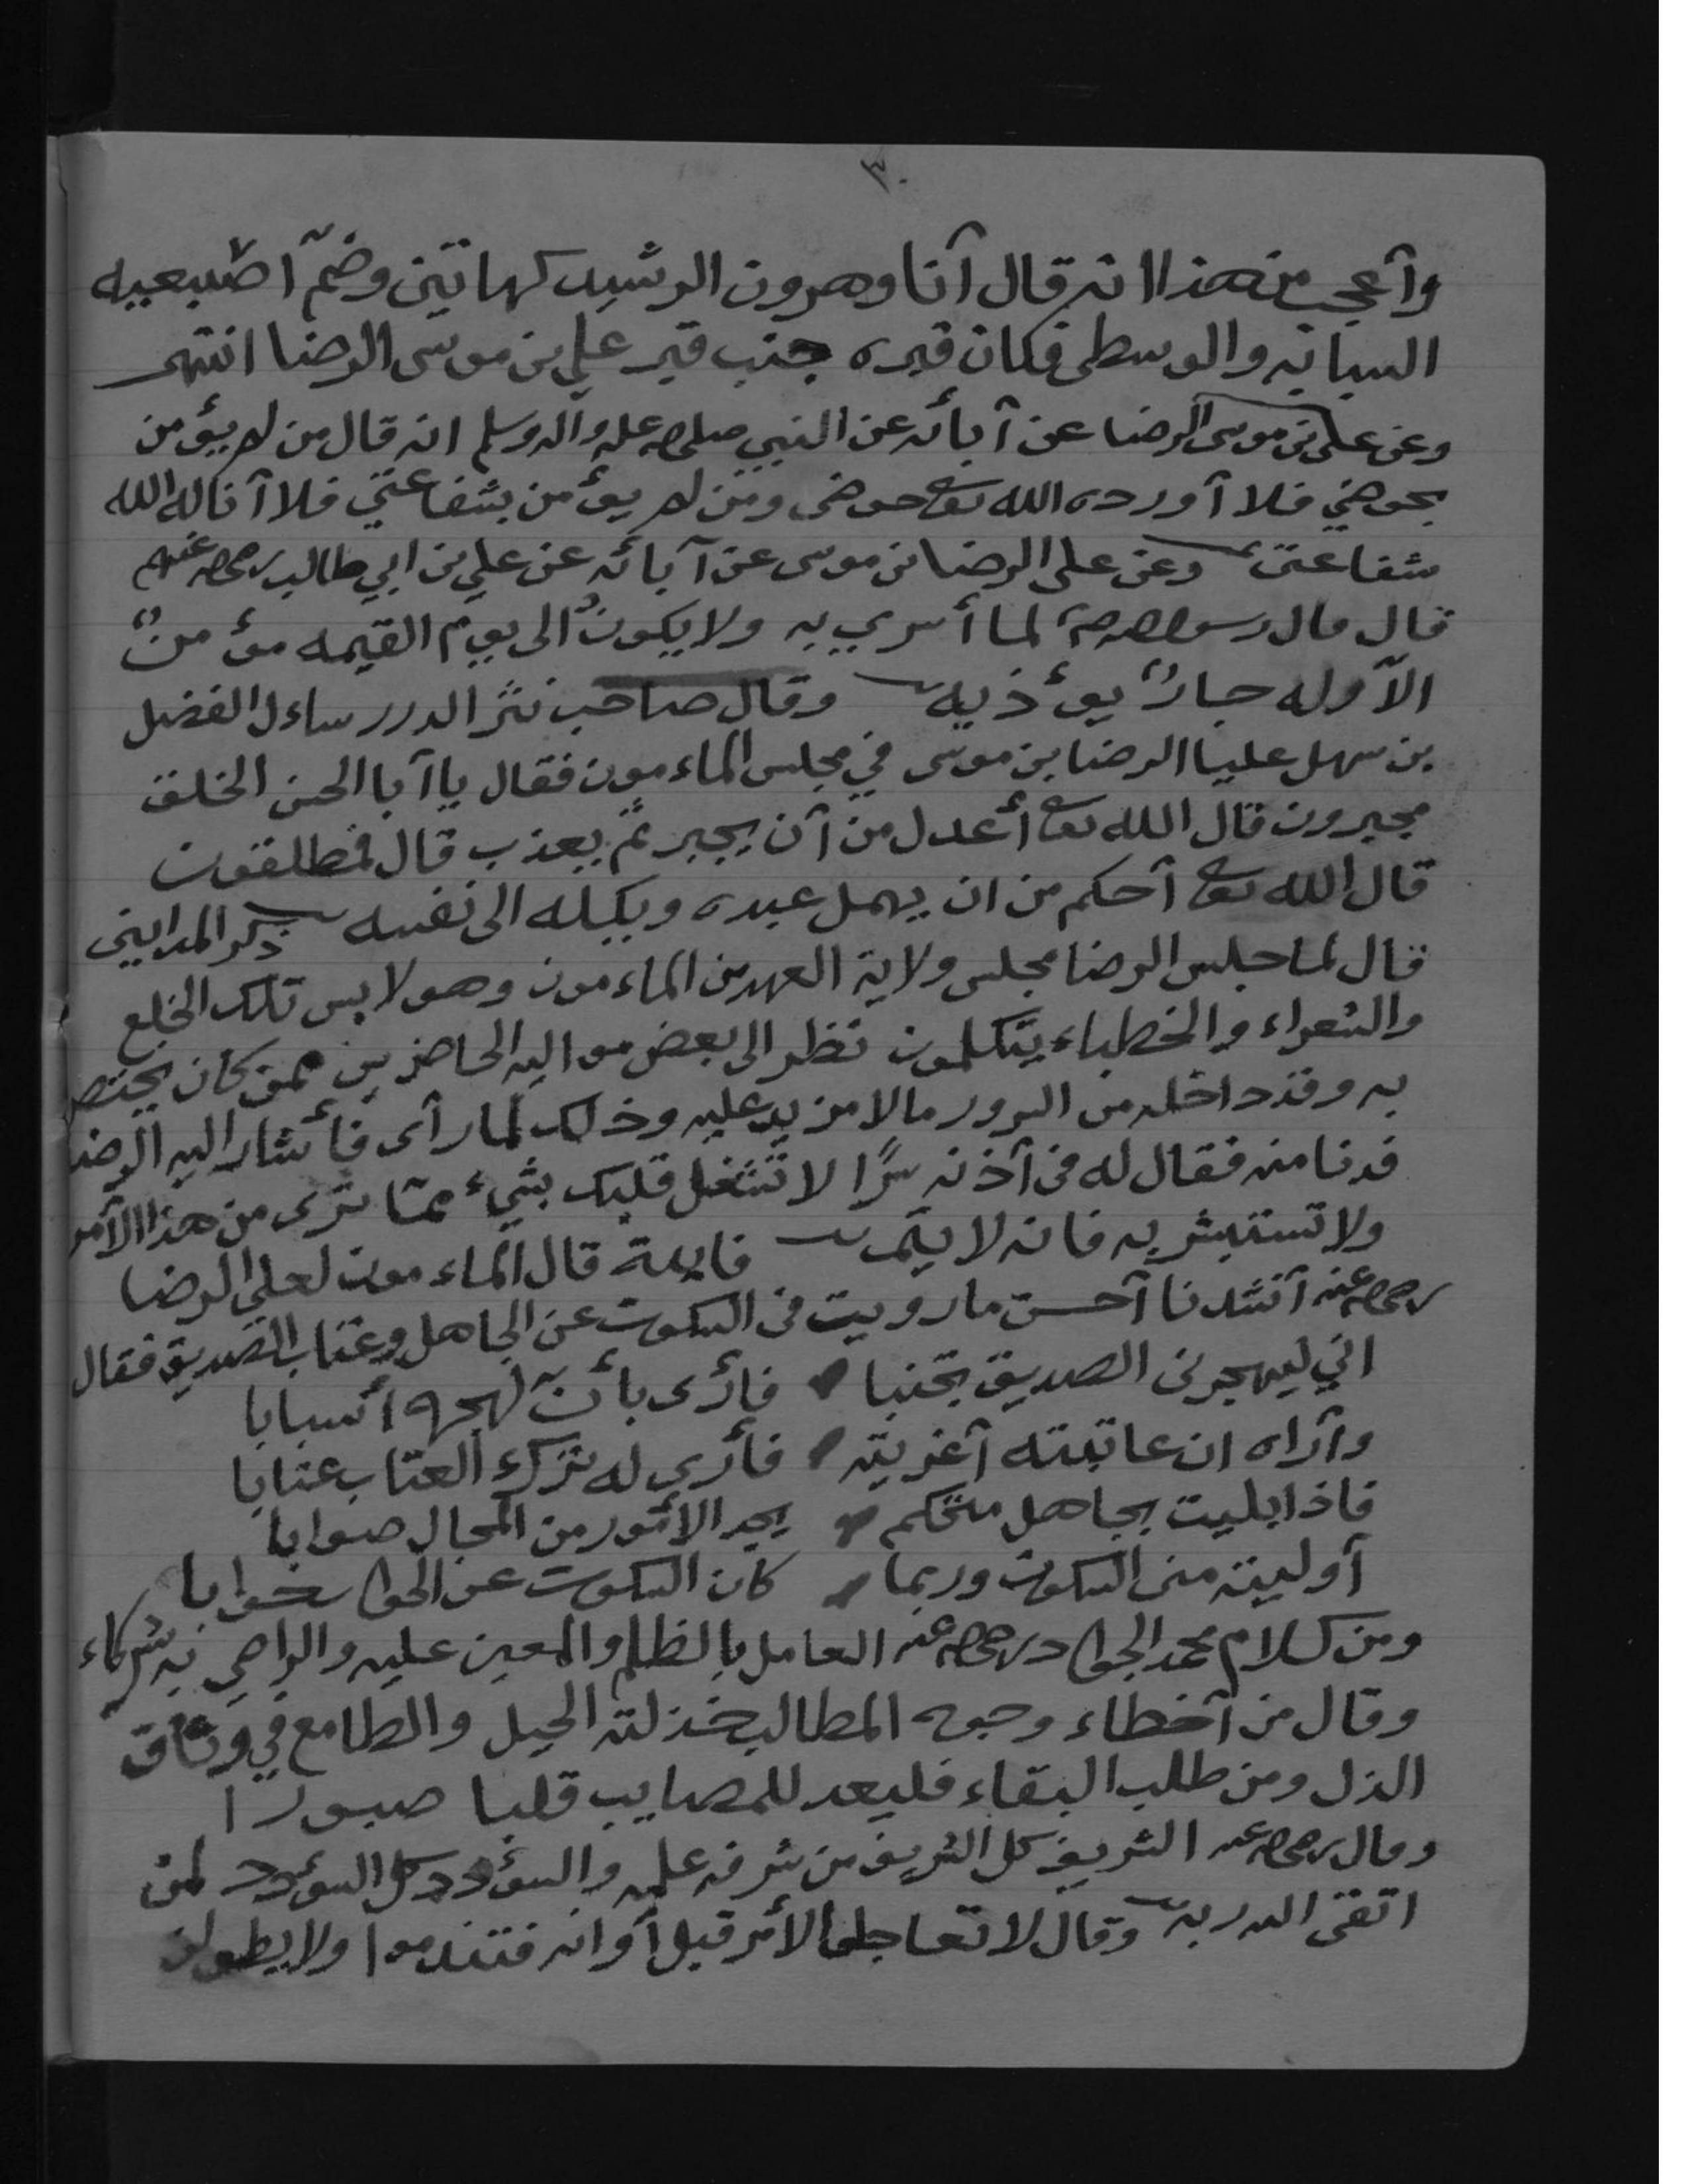 ٣٠
وأعجب من هذا انه قال آنا وهرون الرشيد كهاتين وضمّ اصبعيه
السبابه والوسطى فكان قبره جنب قبر علي بن موسى الرضا انتهى
وعن علي بن موسى الرضا عن آبائه عن النبي صلى الله عليه وآله وسلم انه قال من لم يؤمن
بحوضي فلا آورده الله تعا حوضى ومن لم يؤمن بشفاعتي فلا آناله الله
شفاعتى وعن على الرضا بن موسى عن آبائه عن علي بن ابي طالب رضي الله عنهم
قال قال رسول الله صلعم لما أسري به ولا يكون الى يوم القيمه مؤمنٌ
الاّ وله جارٌ يؤذيه وقال صاحب نثر الدرر ساءل الفضل
بن سهل عليا الرضا بن موسى في مجلس الماءمون فقال يا آبا الحسن الخلق
مجبرون قال الله تعا أعدل من آن يجبر ثم يعذب قال فمطلقون
قال الله تعا آحكم من ان يهمل عبده ويكيله الى نفسه ذكر المدايني
قال لما جلس الرضا مجلس ولاية العهد من الماءمون وهو لابس تلك الخلع
والشعراء والخطباء يتكلمون نظر الى بعض مواليه الحاضرين ممن كان يختص
به وقد داخله من السرور مالا مزيد عليه وذلك لما رآى فأشار اليه الرضا
فدنا منه فقال له فى آذنه سرًا لا تشغل قلبك بشيء ممّا ترى من هذا الآمر
ولا تستبشر به فانه لا يتم فايدة قال الماءمون لعلي الرضا
رضي الله عنه آنشدنا آحسن ما رويت فى السكوت عن الجاهل وعتاب الصديق فقال
اني ليهجرنى الصديق تجنبا فأرى بأنّ لهجره أسبابا
وآراه ان عاتبته آغريته فأرى له ترك العتاب عتابا
فاذا بليت بجاهل متحكم يجد الأمور من المحال صوابا
آوليته منى السكوت وربما كان السكوت عن الجواب جوابا
ومن كلام محمد الجواد رضي الله عنه العامل بالظلم والمعين عليه والراضي به شركاء
وقال من آخطاء وجوه المطالب خذلته الحيل والطامع في وثاق
الذل ومن طلب البقاء فليعد للمصايب قلبا صبورا
وقال رضي الله عنه الشريف كل الشريف من شرفه علمه والسؤدد كل السؤدد لمن
اتقى الله ربه وقال لا تعاجلوا الأمر قبل آوانه فتندموا ولا يطولن